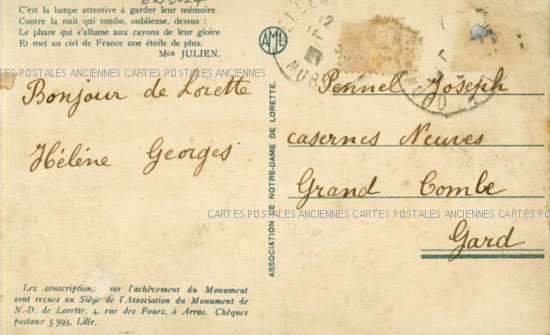 C'est la lampe attentive à garder leur mémoire
Contre la nuit qui tombe, oublieuse, dessus :
Le phare qui s'allume aux rayons de leur gloire
Et met au ciel de France une étoile de plus.
Mgr JULIEN.
CARTES POSTALES ANCIENNES CARTES POSTALES ANCIENNES CARTES POSTALES ANCIENNES
Bonjour de Lorette
Hélène Georges
AML
ASSOCIATION DE NOTRE-DAME DE LORETTE.
12
NORD
Pennel Joseph
casernes Neuves
Grand Combe
Gard
CARTES POSTALES ANCIENNES CARTES POSTALES ANCIENNES CARTES POSTALES
Les souscriptions sur l'achèvement du Monument
sont reçues au Siège de l'Association du Monument de
N.-D. de Lorette, 4, rue des Fours, à Arras. Chèques
postaux 5 593, Lille.